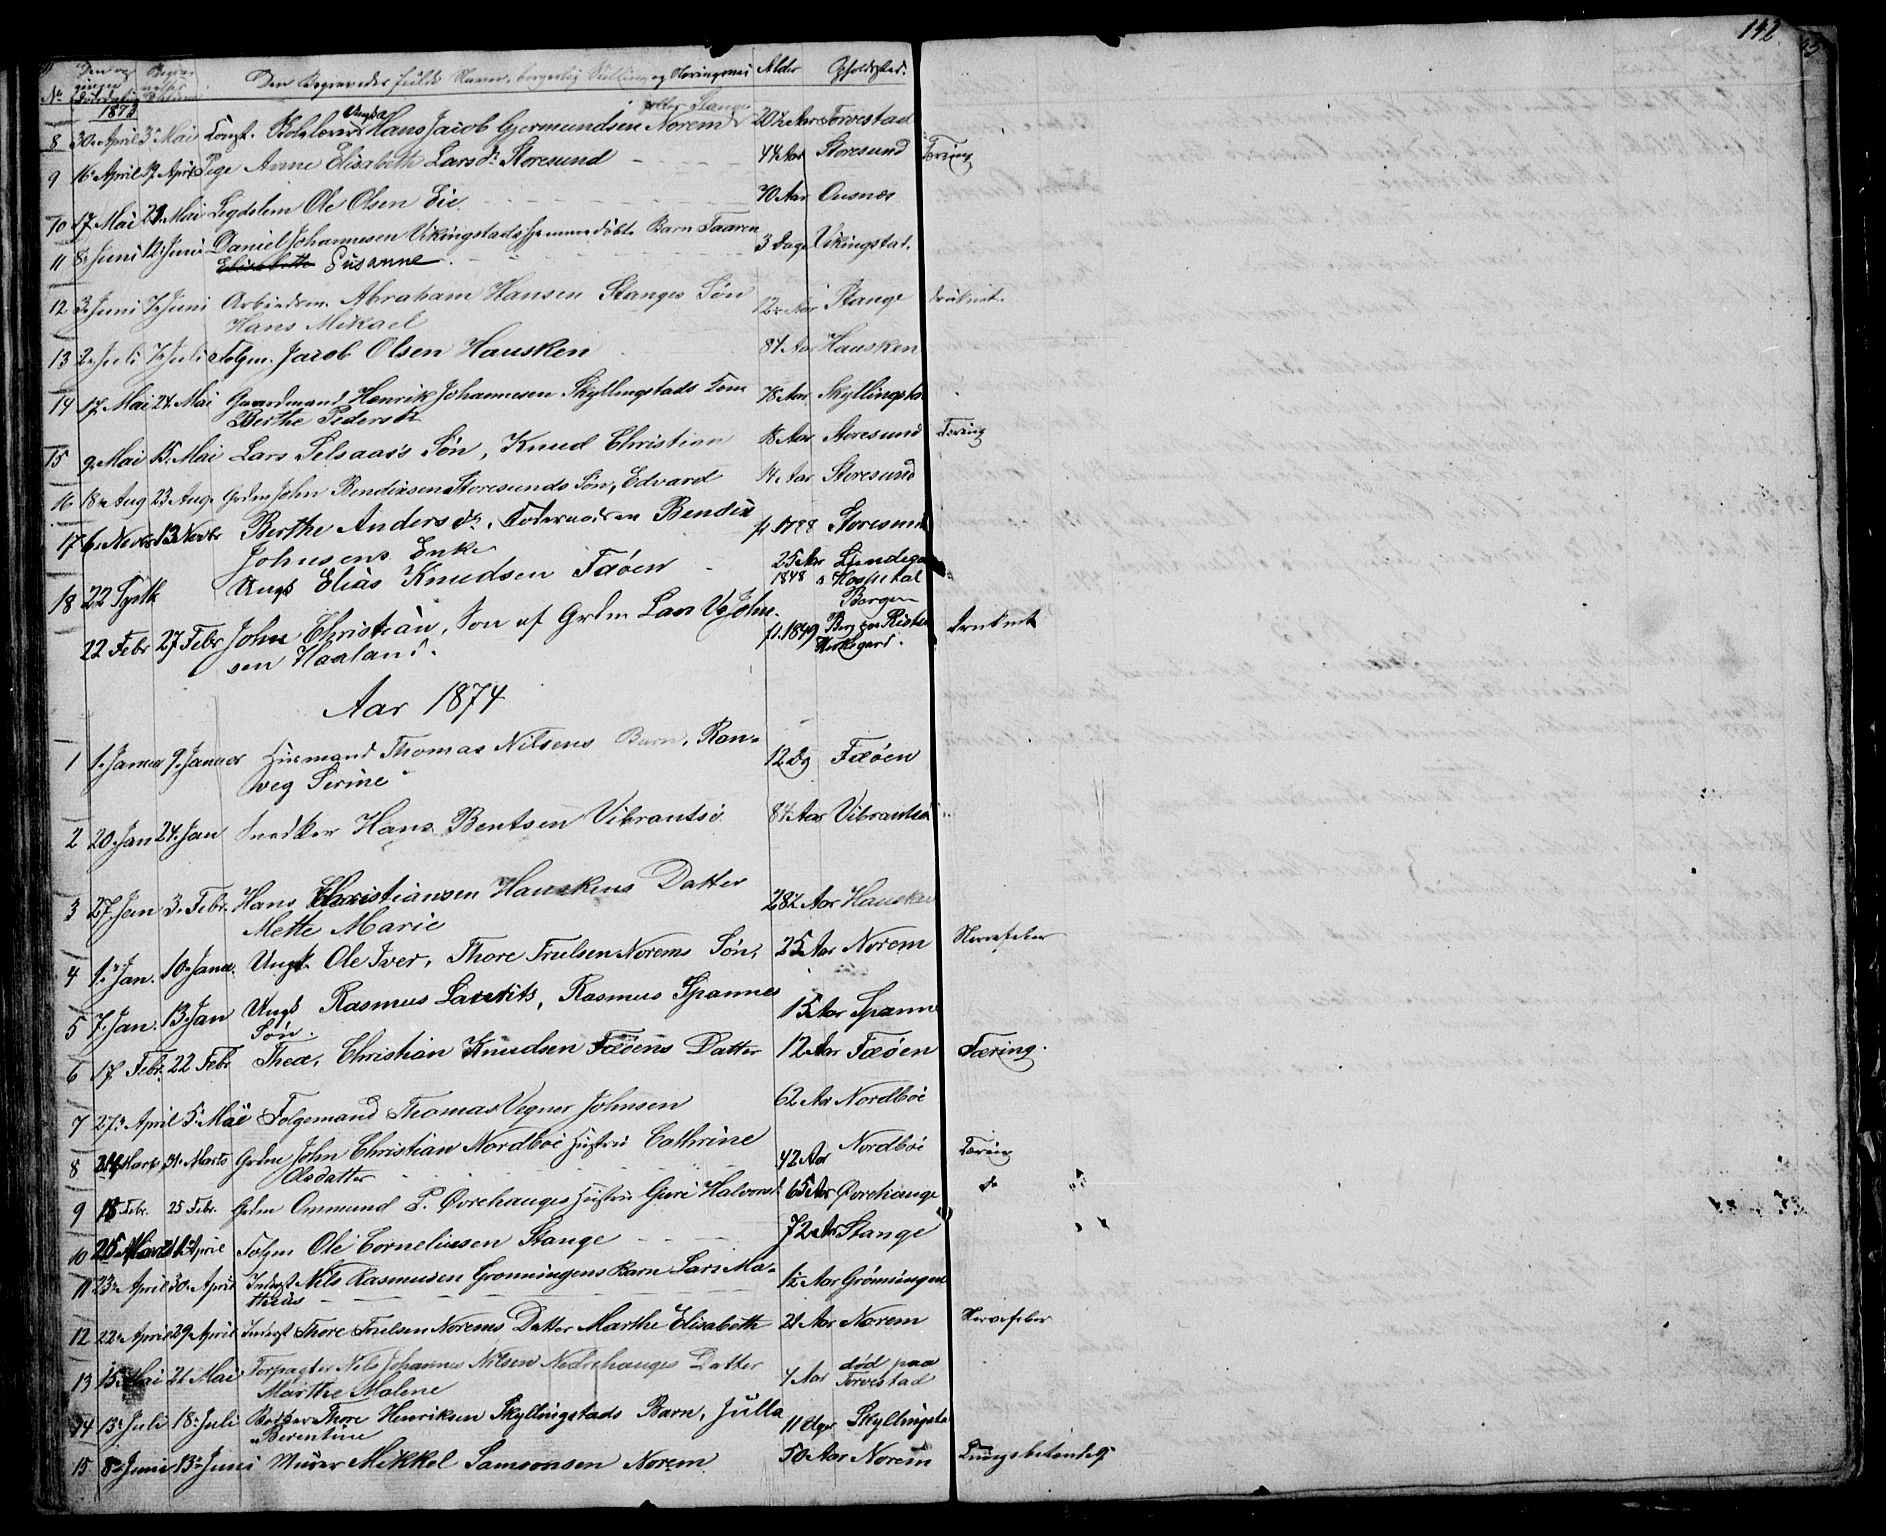 142
No Den og Begra- Den Begravedes fulde Navn, borgerlig Stilling og Næringsvei Alder Opholdssted.
1873
Ungdk eller Stange
8 30. April 3. Mai Hans Jacob Gjermundsen Norem 20½ Aar Torvestad
9 16. April 17. April Pige Anne Elisabeth Larsdr. Storesund 44 Aar Storesund Tæring
10 17 Mai 21. Mai Legdslem Ole Olsen Eie 70 Aar Ousnes
11 8. Juni 12. Juni Daniel Johannesen Vikingstads hjemmedøbte Barn Taaren 3 Dage Vikingstad.
Elisabeth Susanne
12 3. Juni 7. Juni Arbeidsm. Abraham Hansen Stanges Søn 12 Aar Stange druknet
Hans Mikael
13 2. Juli 7. Juli Folgm. Jacob Olsen Hausken 81 Aar Hausken
14 17. Mai 24. Mai Gaardmand Henrik Johannesen Skyllingstads Kone 78 Aar Skyllingsta
Berthe Pedersdr
15 9. Mai 15. Mai Lars Selsaas's Søn, Knud Christian 18 Aar Storesund Tæring
16 18. Aug 23. Aug. Grdm John Bendixsen Storesunds Søn, Edvard 14 Aar Storesund
17 6. Novbr 13. Novbr Berthe Andersdr. Bendix f. 1788 Storesund
Johnsens Enke
18 22 Sept Ungk Elias Knudsen Fæøen 25 Aar
1848 Hospital
Bergen
22 Febr 27 Febr John Christian, Søn af Grdm Lars V. John- f. 1849 druknet
sen Haaland. Kirkegaard.
Aar 1874
1 1. Januar 9. Januar Husmand Thomas Nilsens Barn, Ran- 12 Dg Fæøen
veg Serine
2 20. Jan 24. Jan Snedker Hans Bentsen Vibrantsø 84 Aar Vibrantsø
3 27. Jan 3. Febr. Hans Christiansen Hauskens Datter 28½ Aar Hausken
Mette Marie
4 1. Jan. 10. Januar. Ungk. Ole Iver, Thore Truelsen Norems Søn, 25 Aar Norem Nervefeber
5 7. Jan. 13. Jan Ungk Rasmus Laurits, Rasmus Spannes 15 Aar Spanne
Søn.
6 17 Febr. 22 Febr Thea, Christian Knudsen Fæøens Datter 12 Aar Fæøen Tæring.
7 27. April 5. Mai Folgemand Thomas Vegner Johnsen 62 Aar Nordbøe
8 24 Marts 31. Marts Grdm John Christian Nordbøe Hustru Cathrine 42 Aar Nordbøe Tæring
Olsdatter
9 18 Febr. 25 Febr. Grdm Ommund P. Øvrehauges Hustru Guri Halvorsd. 65 Aar Øvrehauge do
10 25 Marts 1. April Folgm Ole Corneliusen Stange 72 Aar Stange
11 23. April 30. April Inderst Nils Rasmusen Grønningens Barn Lars Ma- 1½ Aar Grønningen
thias
12 22. April 29 April Inderst Thore Truelsen Norems Datter Marthe Elisabeth 21 Aar Norem Nervefeber
13 15 Mai 21 Mai Forpagter Nils Johannes Nilsen Nedrehauges Datter 4 Aar død paa
Marthe Malene Torvestad
14 13. Juli 18. Juli Bødker Thore Henriksen Skyllingstads Barn, Julla 11 dge Skyllingsta
Berentine
15 8. Juni 13. Juni Murer Mikkel Samsonsen Norem 50 Aar Norem Lungebetændelse